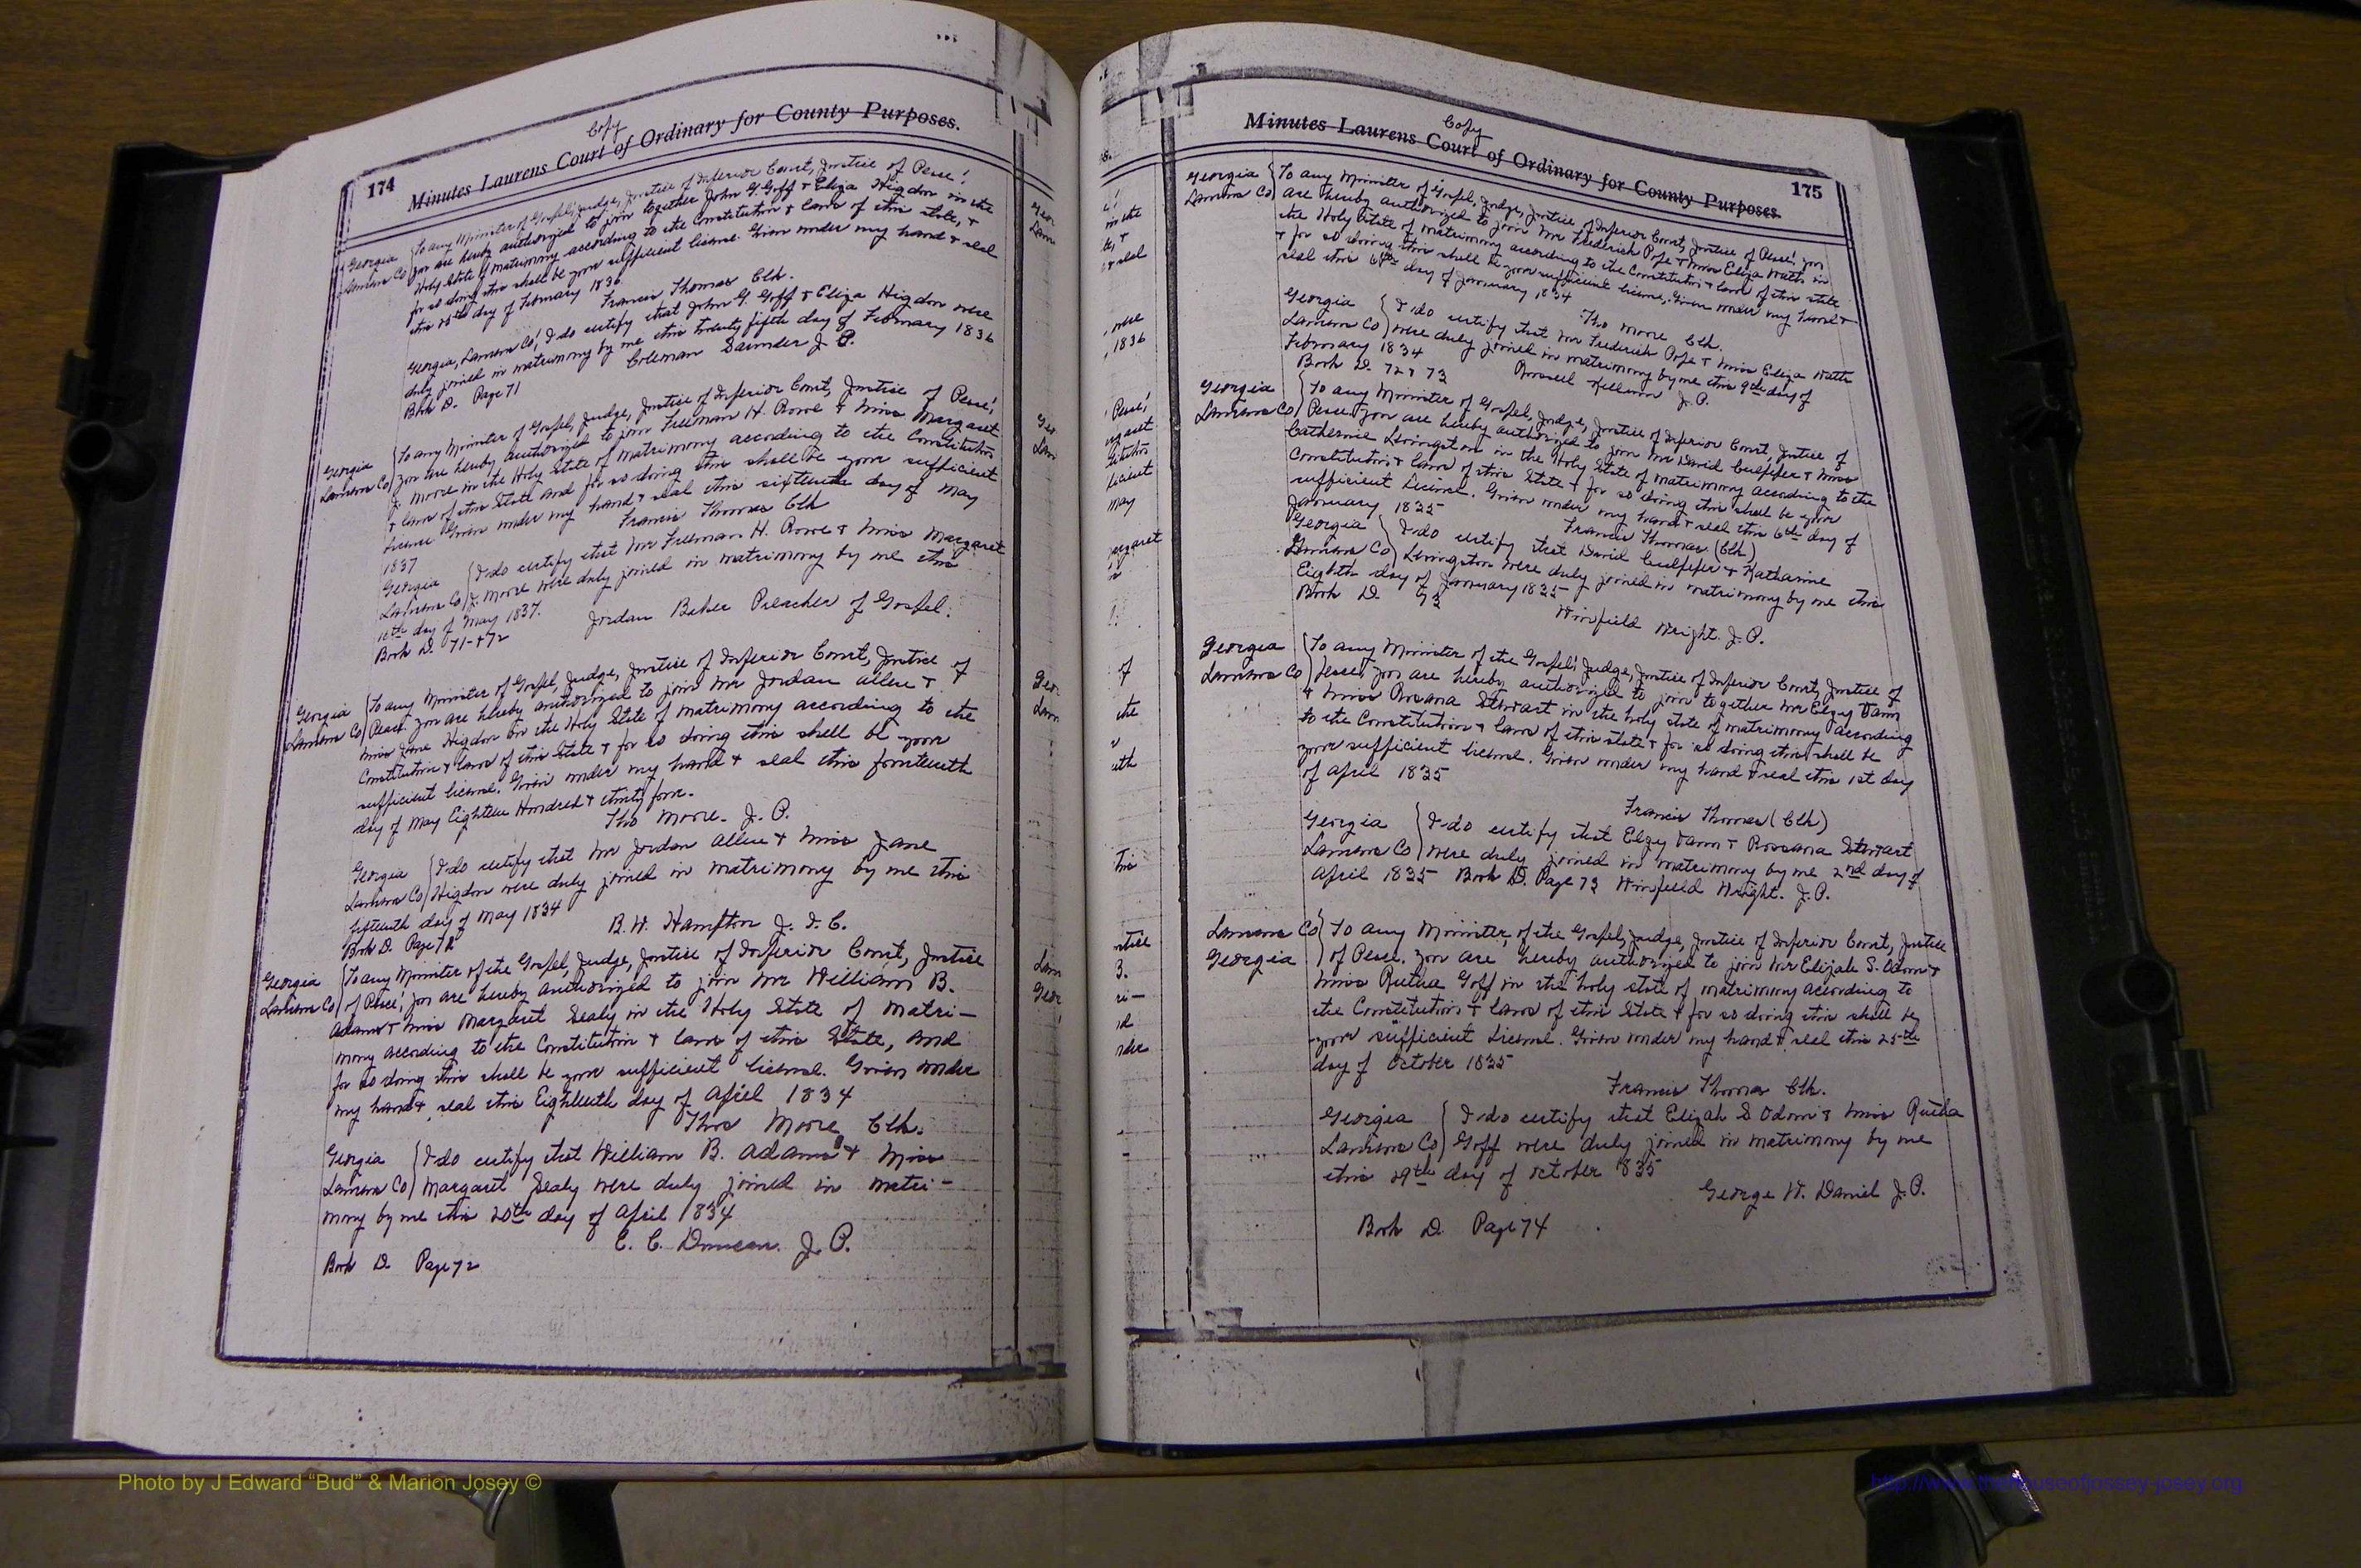 Copy
174 Minutes Laurens Court of Ordinary for County Purposes.
Georgia
Laurens Co
To any Minister of Gospel, Judge, Justice of Inferior Court, Justice of Peace!
you are hereby authorized to join together John G. Goff & Eliza Higdon in the
Holy State of matrimony according to the Constitution & laws of this state, &
for so doing this shall be your sufficient license. Given under my hand & seal
this 25th day of February 1836.
Francis Thomas Clk.
Georgia, Laurens Co! I do certify that John G. Goff & Eliza Higdon were
duly joined in matrimony by me this twenty fifth day of February 1836
Coleman Saunder J. P.
Book D. Page 71
Georgia
Laurens Co
To any Minister of Gospel, Judge, Justice of Inferior Court, Justice of Peace!
you are hereby authorized to join Freeman H. Rowe & Miss Margaret
J. Moore in the Holy State of Matrimony according to the Constitution
& laws of this State and for so doing this shall be your sufficient
license Given under my hand & seal this sixteenth day of May
1837
Francis Thomas Clk
Georgia
Laurens Co
I do certify that Mr Freeman H. Rowe & Miss Margaret
J. Moore were duly joined in matrimony by me this
day of May 1837.
Jordan Baker Preacher of Gospel.
Book D. 71 & 72
Georgia
Laurens Co
To any Minister of Gospel, Judge, Justice of Inferior Court, Justice of
Peace. you are hereby authorized to join Mr Jordan Allen &
Miss Jane Higdon in the Holy State of Matrimony according to the
Constitution & laws of this State & for so doing this shall be your
sufficient license. Given under my hand & seal this fourteenth
day of May Eighteen Hundred & thirty four.
Tho Moore. J. P.
Georgia
Laurens Co
I do certify that Mr Jordan Allen & Miss Jane
Higdon were duly joined in matrimony by me this
fifteenth day of May 1834
B. W. Hampton J. I. C.
Book D. Page 72
Georgia
Laurens Co
To any Minister of the Gospel, Judge, Justice of Inferior Court, Justice
of Peace! you are hereby authorized to join Mr William B.
Adams & Miss Margaret Sealy in the Holy State of Matri-
mony according to the Constitution & laws of this State, and
for so doing this shall be your sufficient license. Given under
my hand & seal this Eighteenth day of April 1834
Thos Moore Clk.
Georgia
Laurens Co
I do certify that William B. Adams & Miss
Margaret Sealy were duly joined in matri-
mony by me this 20th day of April 1834
C. C. Duncan. J. P.
Book D. Page 72
Copy
Minutes Laurens Court of Ordinary for County Purposes. 175
Georgia
Laurens Co
To any Minister of Gospel, Judge, Justice of Inferior Court, Justice of Peace! you
are hereby authorized to join Mr Frederich Pope & Miss Eliza Watts in
the Holy State of matrimony according to the Constitution & laws of this state
& for so doing this shall be your sufficient license. Given under my hand &
seal this day of January 1834
Tho Moore Clk.
Georgia
Laurens Co
I do certify that Mr Frederich Pope & Miss Eliza Watts
were duly joined in matrimony by me this 9th day of
February 1834
Russell Kellum J. P.
Book D. 72 & 73
Georgia
Laurens Co
To any Minister of Gospel, Judge, Justice of Inferior Court, Justice of
Peace, you are hereby authorized to join Mr David Culpeper & Miss
Catherine Livingston in the Holy State of matrimony according to the
Constitution & laws of this State & for so doing this shall be your
sufficient License. Given under my hand & seal this 6th day of
January 1835
Francis Thomas (Clk)
Georgia
Laurens Co
I do certify that David Culpeper & Katharine
Livingston were duly joined in matrimony by me this
Eighth day of January 1835
Winfield Wright. J. P.
Book D. 73
Georgia
Laurens Co
To any Minister of the Gospel! Judge, Justice of Inferior Court, Justice of
Peace, you are hereby authorized to join together Mr Elzey Fann
& Miss Rosana Stewart in the holy state of matrimony according
to the Constitution & laws of this state & for so doing this shall be
your sufficient license. Given under my hand & seal this 1st day
of April 1835
Francis Thomas (Clk)
Georgia
Laurens Co
I do certify that Elzy Fann & Rossana Stewart
were duly joined in matrimony by me 2nd day of
April 1835 Book D. Page 73 Winfield Wright. J. P.
Laurens Co
Georgia
To any Minister, of the Gospel, Judge, Justice of Inferior Court, Justice
of Peace. you are hereby authorized to join Mr Elijah S. Odom &
Miss Rutha Goff in the holy state of matrimony according to
the Constitution & laws of this State & for so doing this shall be
your sufficient License. Given under my hand & seal this 25th
day of October 1835
Francis Thomas Clk.
Georgia
Laurens Co
I do certify that Elijah S Odom & Miss Rutha
Goff were duly joined in matrimony by me
this 29th day of October 1835
George W. Daniel J. P.
Book D. Page 74
Photo by J Edward “Bud” & Marion Josey ©
http://www.thehouseofjossey-josey.org